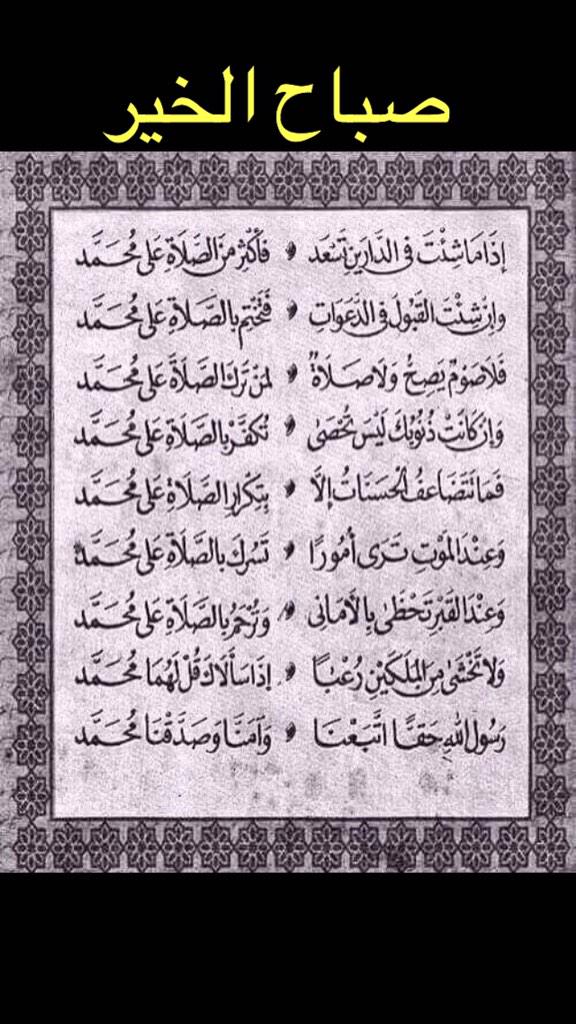 صباح الخير
إِذَا مَا شِئْتَ فِي الدَّارَيْنِ تَسْعَد ٭ فَأَكْثِرْ مِنَ الصَّلَاةِ عَلَى مُحَمَّد
وَإِنْ شِئْتَ القَبُولَ فِي الدَّعَوَاتِ ٭ فَتَخْتِم بِالصَّلَاةِ عَلَى مُحَمَّد
فَلَا صَوْمٌ يَصِحُّ وَلَا صَلَاةٌ ٭ لِمَنْ تَرَكَ الصَّلَاةَ عَلَى مُحَمَّد
وَإِنْ كَانَتْ ذُنُوبُكَ لَيْسَ تُحْصَى ٭ تُكَفَّرْ بِالصَّلَاةِ عَلَى مُحَمَّد
فَمَا تَتَضَاعَفُ الْحَسَنَاتُ إِلَّا ٭ بِتِكْرَارِ الصَّلَاةِ عَلَى مُحَمَّد
وَعِنْدَ المَوْتِ تَرَى أُمُورًا ٭ تَسُرُّكَ بِالصَّلَاةِ عَلَى مُحَمَّد
وَعِنْدَ القَبْرِ تَحْظَى بِالأَمَانِي ٭ وَتُرْحَمُ بِالصَّلَاةِ عَلَى مُحَمَّد
وَلَا تَخْشَى مِنَ المَلَكَيْنِ رُعْبًا ٭ إِذَا سَأَلَاكَ قُلْ لَهُمَا مُحَمَّد
رَسُولُ اللهِ حَقًّا اتَّبَعْنَا ٭ وَآمَنَّا وَصَدَّقْنَا مُحَمَّد